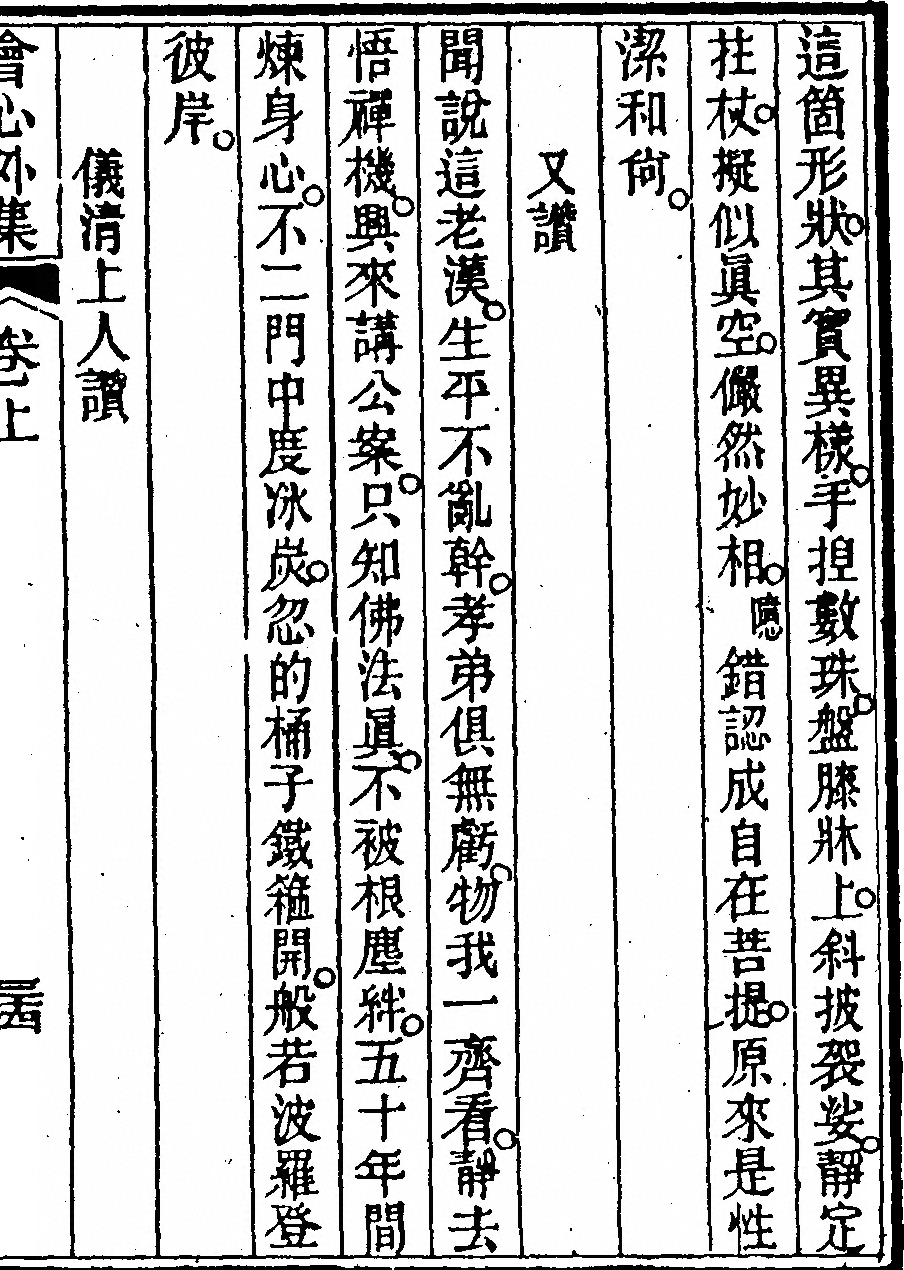 這箇形狀。其實異樣。手揑數珠。盤膝牀上。斜披袈裟。靜定
拄杖。擬似眞空。儼然妙相。噫錯認成自在菩提。原來是性
潔和尙。
又讚
聞說這老漢。生平不亂幹。孝弟俱無虧。物我一齊看。靜去
悟禪機。興來講公案。只知佛法眞。不被根塵絆。五十年間
煉身心。不二門中度氷炭。忽的桶子鐵箍開。般若波羅登
彼岸。
儀清上人讚
會心外集 卷上 二十四